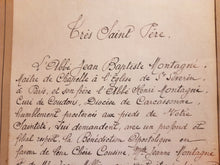 Très Saint Père.
L'Abbé Jean Baptiste Montagné
Maître de Chapelle à l'Eglise de St Séverin
à Paris, et son frère l'Abbé Henri Montagné
Curé de Coudons, Diocèse de Carcassonne
humblement prosternés aux pieds de Votre
Sainteté, lui demandent, avec un profond et
filial respect, la Bénédiction Apostolique en
faveur de leur Chère Cousine Jeanne Montagné